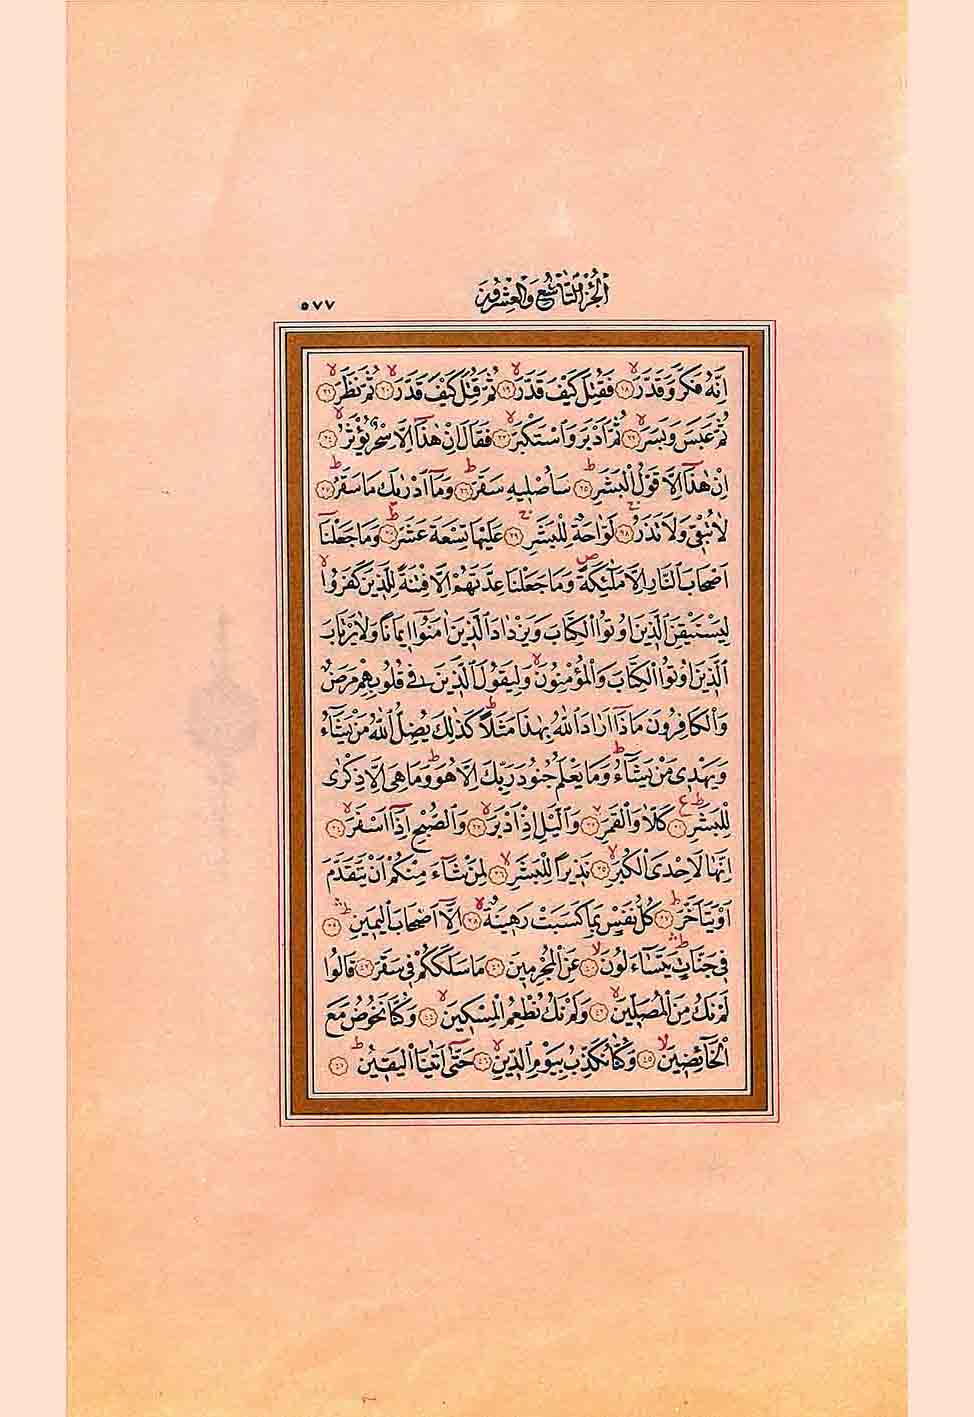 الجزء التاسع والعشرون
٥٧٧
اِنَّهُ فَكَّرَ وَقَدَّرَۙ ﴿١٨﴾ فَقُتِلَ كَيْفَ قَدَّرَۙ ﴿١٩﴾ ثُمَّ قُتِلَ كَيْفَ قَدَّرَۙ ﴿٢٠﴾ ثُمَّ نَظَرَۙ ﴿٢١﴾
ثُمَّ عَبَسَ وَبَسَرَۙ ﴿٢٢﴾ ثُمَّ اَدْبَرَ وَاسْتَكْبَرَۙ ﴿٢٣﴾ فَقَالَ اِنْ هٰذَٓا اِلَّا سِحْرٌ يُؤْثَرُۙ ﴿٢٤﴾
اِنْ هٰذَٓا اِلَّا قَوْلُ الْبَشَرِۜ ﴿٢٥﴾ سَاُصْلِيهِ سَقَرَ ﴿٢٦﴾ وَمَٓا اَدْرٰيكَ مَا سَقَرُۜ ﴿٢٧﴾
لَا تُبْقِي وَلَا تَذَرُۚ ﴿٢٨﴾ لَوَّاحَةٌ لِلْبَشَرِۚ ﴿٢٩﴾ عَلَيْهَا تِسْعَةَ عَشَرَۜ ﴿٣٠﴾ وَمَا جَعَلْنَٓا
اَصْحَابَ النَّارِ اِلَّا مَلٰٓئِكَةًۖ وَمَا جَعَلْنَا عِدَّتَهُمْ اِلَّا فِتْنَةً لِلَّذِينَ كَفَرُواۙ
لِيَسْتَيْقِنَ الَّذِينَ اُوتُوا الْكِتَابَ وَيَزْدَادَ الَّذِينَ اٰمَنُٓوا اِيمَانًا وَلَا يَرْتَابَ
الَّذِينَ اُوتُوا الْكِتَابَ وَالْمُؤْمِنُونَۙ وَلِيَقُولَ الَّذِينَ فِي قُلُوبِهِمْ مَرَضٌ
وَالْكَافِرُونَ مَاذَٓا اَرَادَ اللّٰهُ بِهٰذَا مَثَلًاۜ كَذٰلِكَ يُضِلُّ اللّٰهُ مَنْ يَشَٓاءُ
وَيَهْدِي مَنْ يَشَٓاءُۜ وَمَا يَعْلَمُ جُنُودَ رَبِّكَ اِلَّا هُوَۜ وَمَا هِيَ اِلَّا ذِكْرٰى
لِلْبَشَرِ۟ ﴿٣١﴾ كَلَّا وَالْقَمَرِۙ ﴿٣٢﴾ وَالَّيْلِ اِذْ اَدْبَرَۙ ﴿٣٣﴾ وَالصُّبْحِ اِذَٓا اَسْفَرَۙ ﴿٣٤﴾
اِنَّهَا لَاِحْدَى الْكُبَرِۙ ﴿٣٥﴾ نَذِيرًا لِلْبَشَرِۙ ﴿٣٦﴾ لِمَنْ شَٓاءَ مِنْكُمْ اَنْ يَتَقَدَّمَ
اَوْ يَتَاَخَّرَۜ ﴿٣٧﴾ كُلُّ نَفْسٍ بِمَا كَسَبَتْ رَهِينَةٌۙ ﴿٣٨﴾ اِلَّٓا اَصْحَابَ الْيَمِينِۜ ﴿٣٩﴾
فِي جَنَّاتٍۜ يَتَسَٓاءَلُونَۙ ﴿٤٠﴾ عَنِ الْمُجْرِمِينَ ﴿٤١﴾ مَا سَلَكَكُمْ فِي سَقَرَ ﴿٤٢﴾ قَالُوا
لَمْ نَكُ مِنَ الْمُصَلِّينَۙ ﴿٤٣﴾ وَلَمْ نَكُ نُطْعِمُ الْمِسْكِينَۙ ﴿٤٤﴾ وَكُنَّا نَخُوضُ مَعَ
الْخَٓائِضِينَۙ ﴿٤٥﴾ وَكُنَّا نُكَذِّبُ بِيَوْمِ الدِّينِۙ ﴿٤٦﴾ حَتّٰٓى اَتٰينَا الْيَقِينُۜ ﴿٤٧﴾